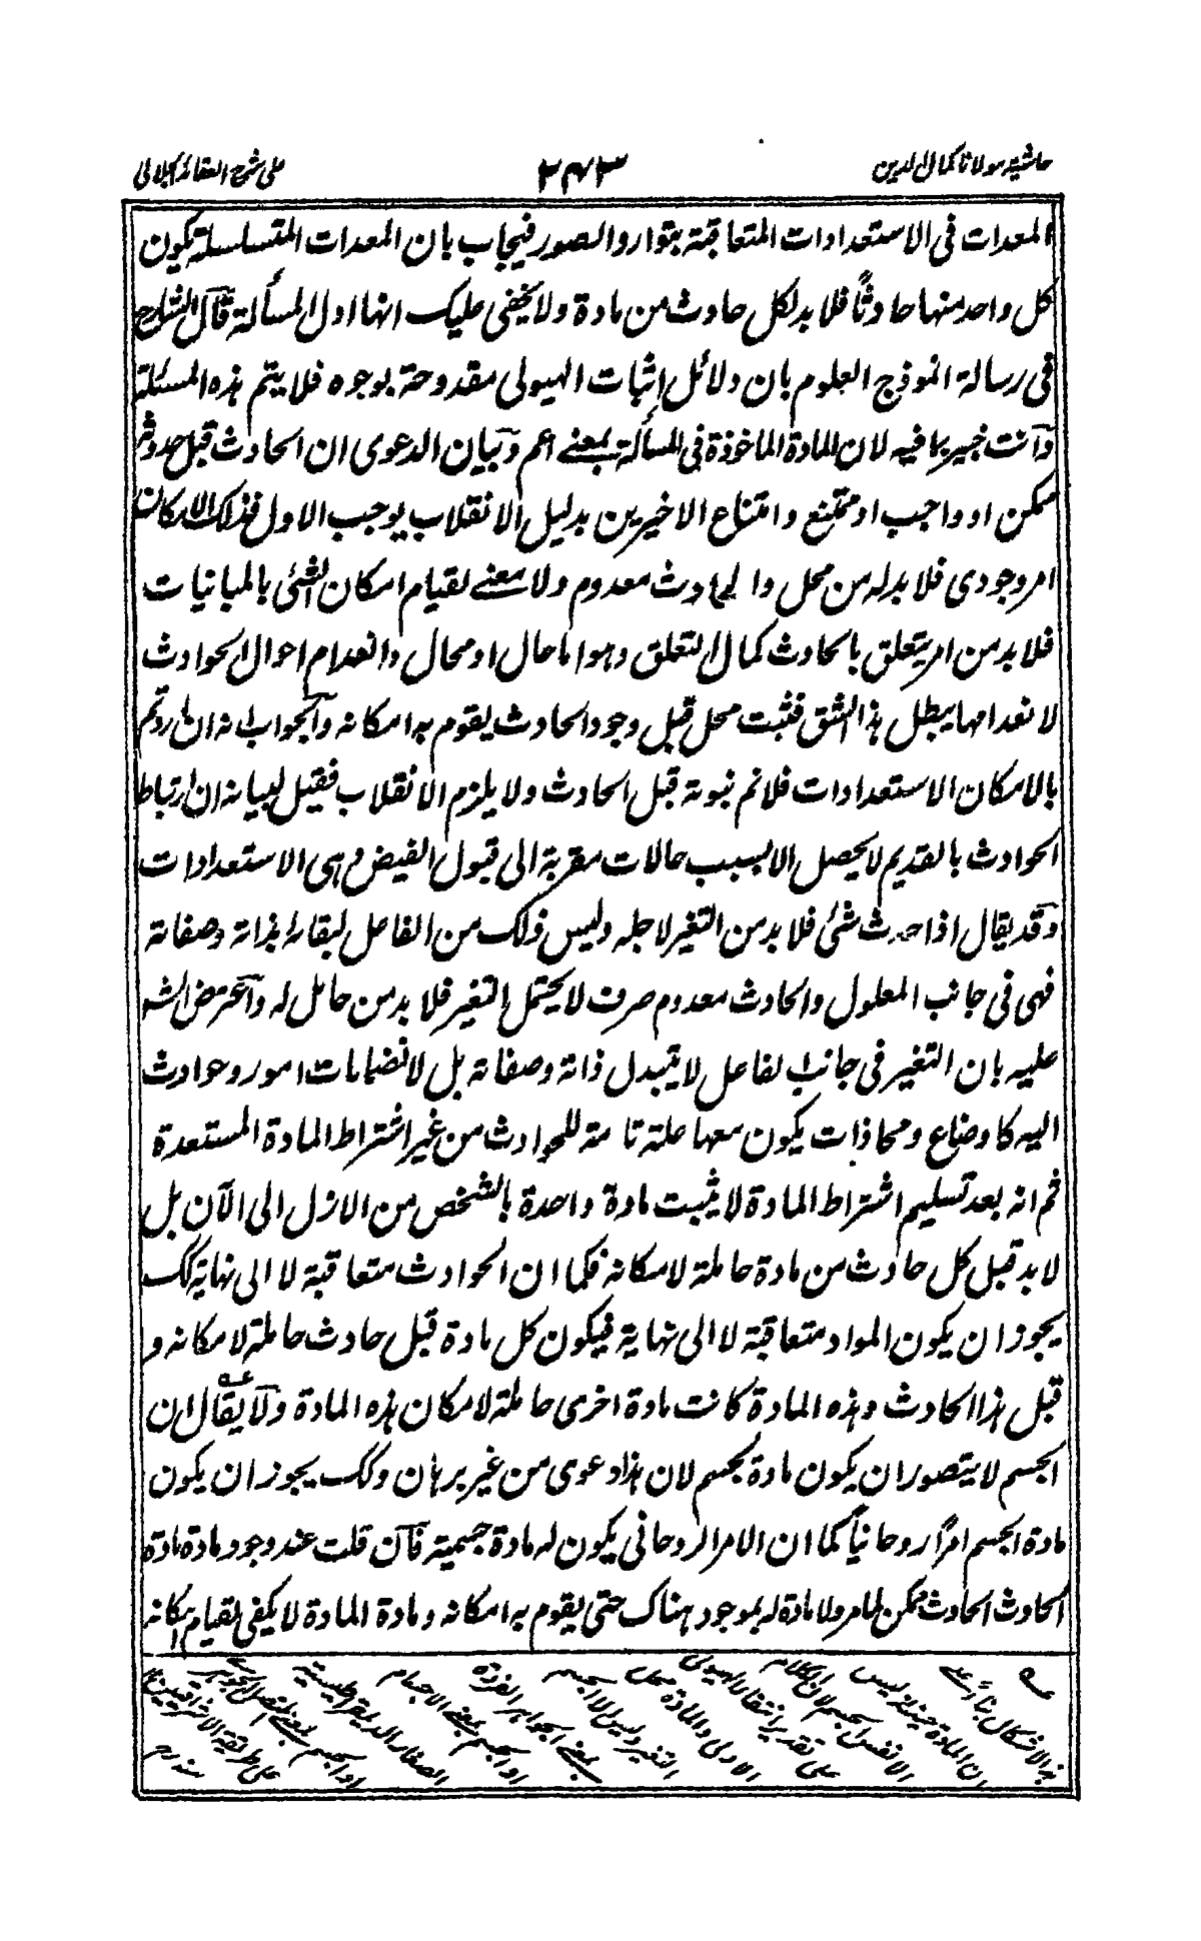 حاشية مولانا كمال الدين
٢٤٣
على شرح العقائد الجلالي
المعدات فى الاستعدادات المتعاقبة بتوارد الصور فيجاب بان المعدات المتسلسلة يكون
كل واحد منها حادثًا فلا بد لكل حادث من مادة ولا يخفى عليك انها اول المسألة قال الشارح
فى رسالة انموذج العلوم بان دلائل إثبات الهيولى مقدوحة بوجوه فلا يتم هذه المسئلة
وانت خبير بما فيه لان المادة الماخوذة فى المسألة بمعنے اعم وبيان الدعوى ان الحادث قبل حدوثه
ممكن او واجب او ممتنع وامتناع الاخيرين بدليل الانقلاب يوجب الاول فذلك الامكان
امر وجودى فلا بد له من محل والحادث معدوم ولا معنے لقيام امكان الشئ بالمباينات
فلا بد من امر يتعلق بالحادث كمال التعلق وهو اما حال او محال وانعدام احوال الحوادث
لانعدامها يبطل هذا الشق فثبت محل قبل وجود الحادث يقوم به امكانه والجواب انه ان اردتم
بالامكان الاستعدادات فلانم ثبوته قبل الحادث ولا يلزم الانقلاب فقيل لبيانه ان ارتباط
الحوادث بالقديم لا يحصل الا بسبب حالات مقربة الى قبول الفيض وهى الاستعدادات
وقد يقال اذا حدث شئ فلا بد من التغير لاجله وليس ذلك من الفاعل لبقائه بذاته وصفاته
فهى فى جانب المعلول والحادث معدوم صرف لا يحتمل التغير فلا بد من حامل له واعترض الشه
عليه بان التغير فى جانب الفاعل لا يتبدل ذاته وصفاته بل لانضمامات امور وحوادث
اليه كاوضاع ومحاذات يكون معها علة تامة للحوادث من غير اشتراط المادة المستعدة
ثم انه بعد تسليم اشتراط المادة لا يثبت مادة واحدة بالشخص من الازل الى الآن بل
لا بد قبل كل حادث من مادة حاملة لامكانه فكما ان الحوادث متعاقبة لا الى نهاية كك
يجوز ان يكون المواد متعاقبة لا الى نهاية فيكون كل مادة قبل حادث حاملة لامكانه و
قبل هذا الحادث وهذه المادة كانت مادة اخرى حاملة لامكان هذه المادة ولا يقال ان
الجسم لا يتصور ان يكون مادة لجسم لان هذا دعوى من غير برهان وكك يجوز ان يكون
مادة الجسم امرًا روحانياً كما ان الامر الروحانى يكون له مادة جسمية فان قلت عند وجود مادة مادة
الحادث الحادث ممكن لما مر ولا مادة له بموجود هناك حتى يقوم به امكانه ومادة المادة لا يكفى لقيام امكانه
عه
هذا الاشكال بناءً على
ان المادة حينئذ ليس
الا نفس الجسم لان الكلام
على تقدير انتفاء الهيولى
الاولى والمادة محل
التغير وليس الا الجسم
بمعنے الجواهر الفردة
او الجسم بمعنے الاجسام
الصغار الديمقراطيسية
او الجسم بمعنے المتصل الجوهرى
على طريقة الاشراقيين
منه رح